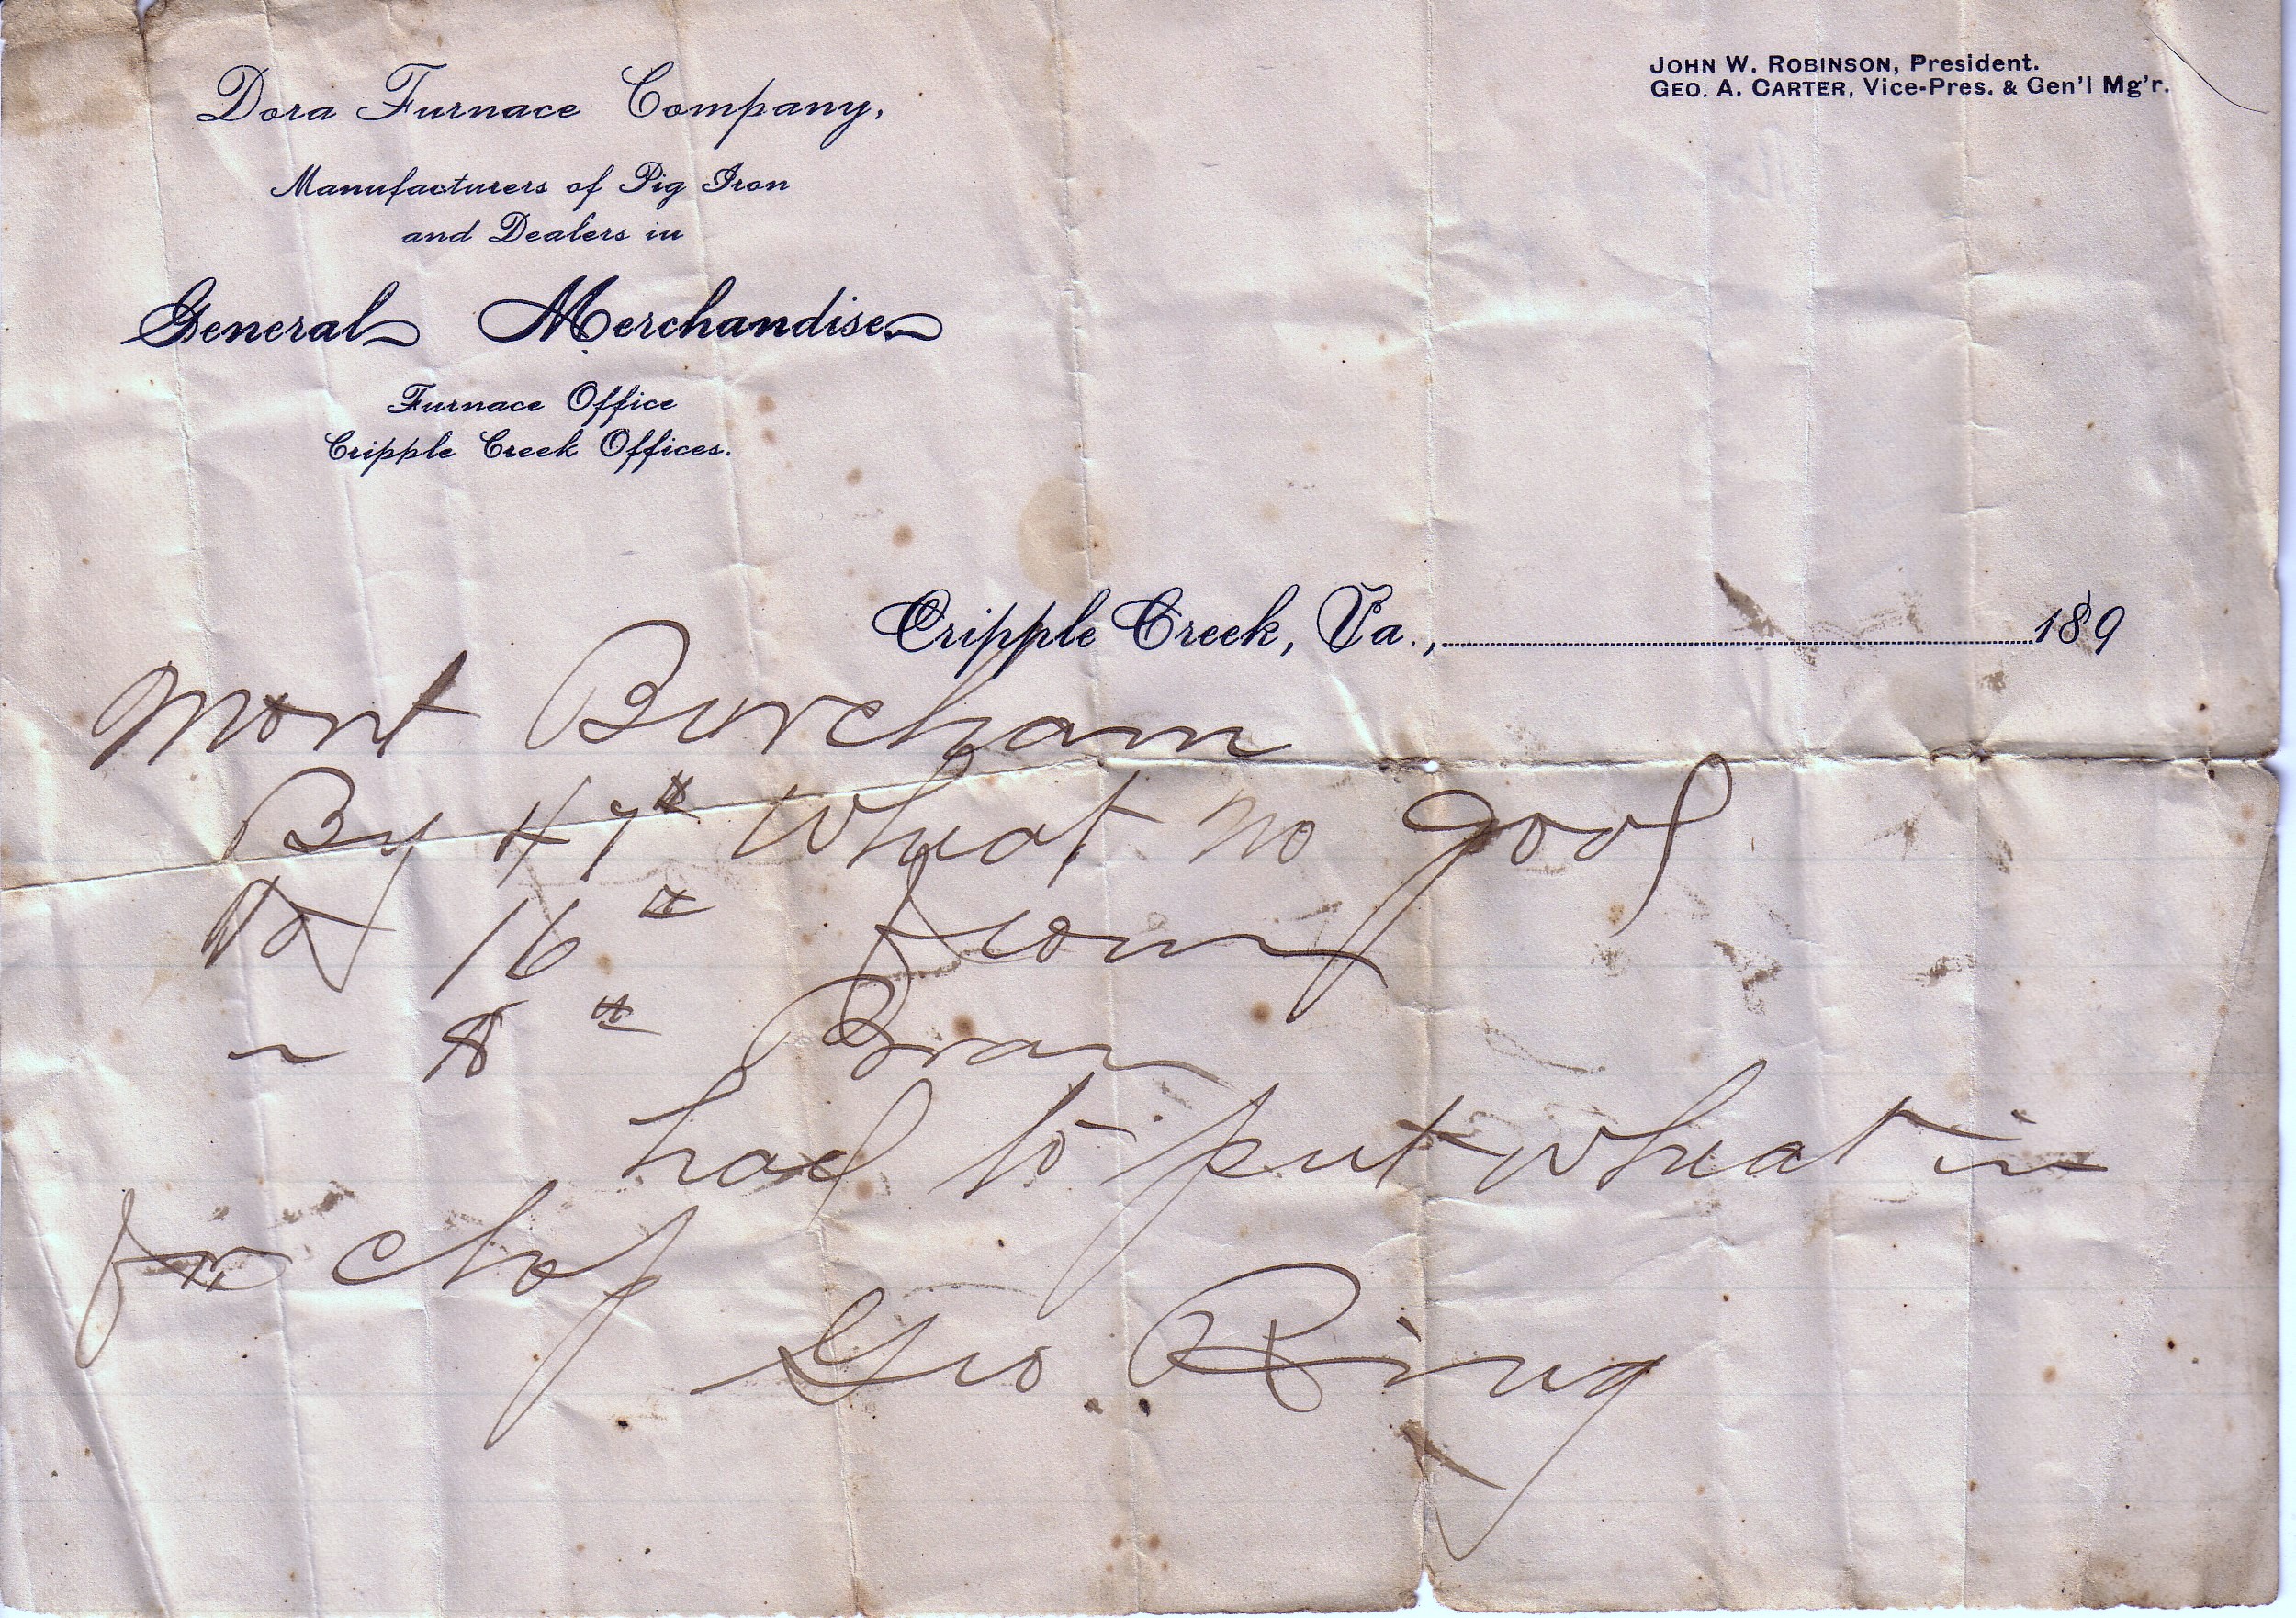 JOHN W. ROBINSON, President.
GEO. A. CARTER, Vice-Pres. & Gen'l Mg'r.
Dora Furnace Company,
Manufacturers of Pig Iron
and Dealers in
General Merchandise
Furnace Office
Cripple Creek Offices.
Cripple Creek, Va., 189
Mort Burcham
By 47# wheat no good
To 16# flour
~ 8# Bran
had to put wheat in
for chop
Geo Ring